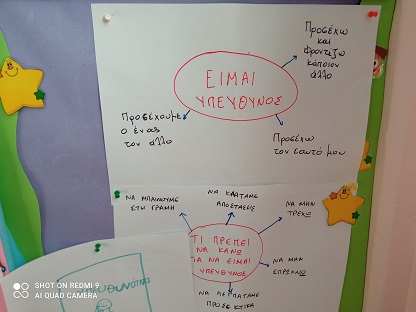 Προσέχω
και
φροντίζω
κάποιον
άλλο
ΕΙΜΑΙ
ΥΠΕΥΘΥΝΟΣ
Προσέχουμε
ο ένας
τον άλλο
Προσέχω
τον εαυτό μου
ΝΑ ΜΠΑΙΝΟΥΜΕ
ΣΤΗ ΓΡΑΜΗ
ΝΑ ΚΡΑΤΑΜΕ
ΑΠΟΣΤΑΣΕΙΣ
ΝΑ ΜΗΝ
ΤΡΕΧΩ
ΤΙ ΠΡΕΠΕΙ
ΝΑ ΚΑΝΩ
ΓΙΑ ΝΑ ΕΙΜΑΙ
ΥΠΕΥΘΥΝΟΣ
ΝΑ ΜΗΝ
ΣΠΡΩΧΝΩ
ΝΑ ΠΕΡΠΑΤΑΜΕ
ΠΡΟΣΕΚΤΙΚΑ
SHOT ON REDMI 9
AI QUAD CAMERA